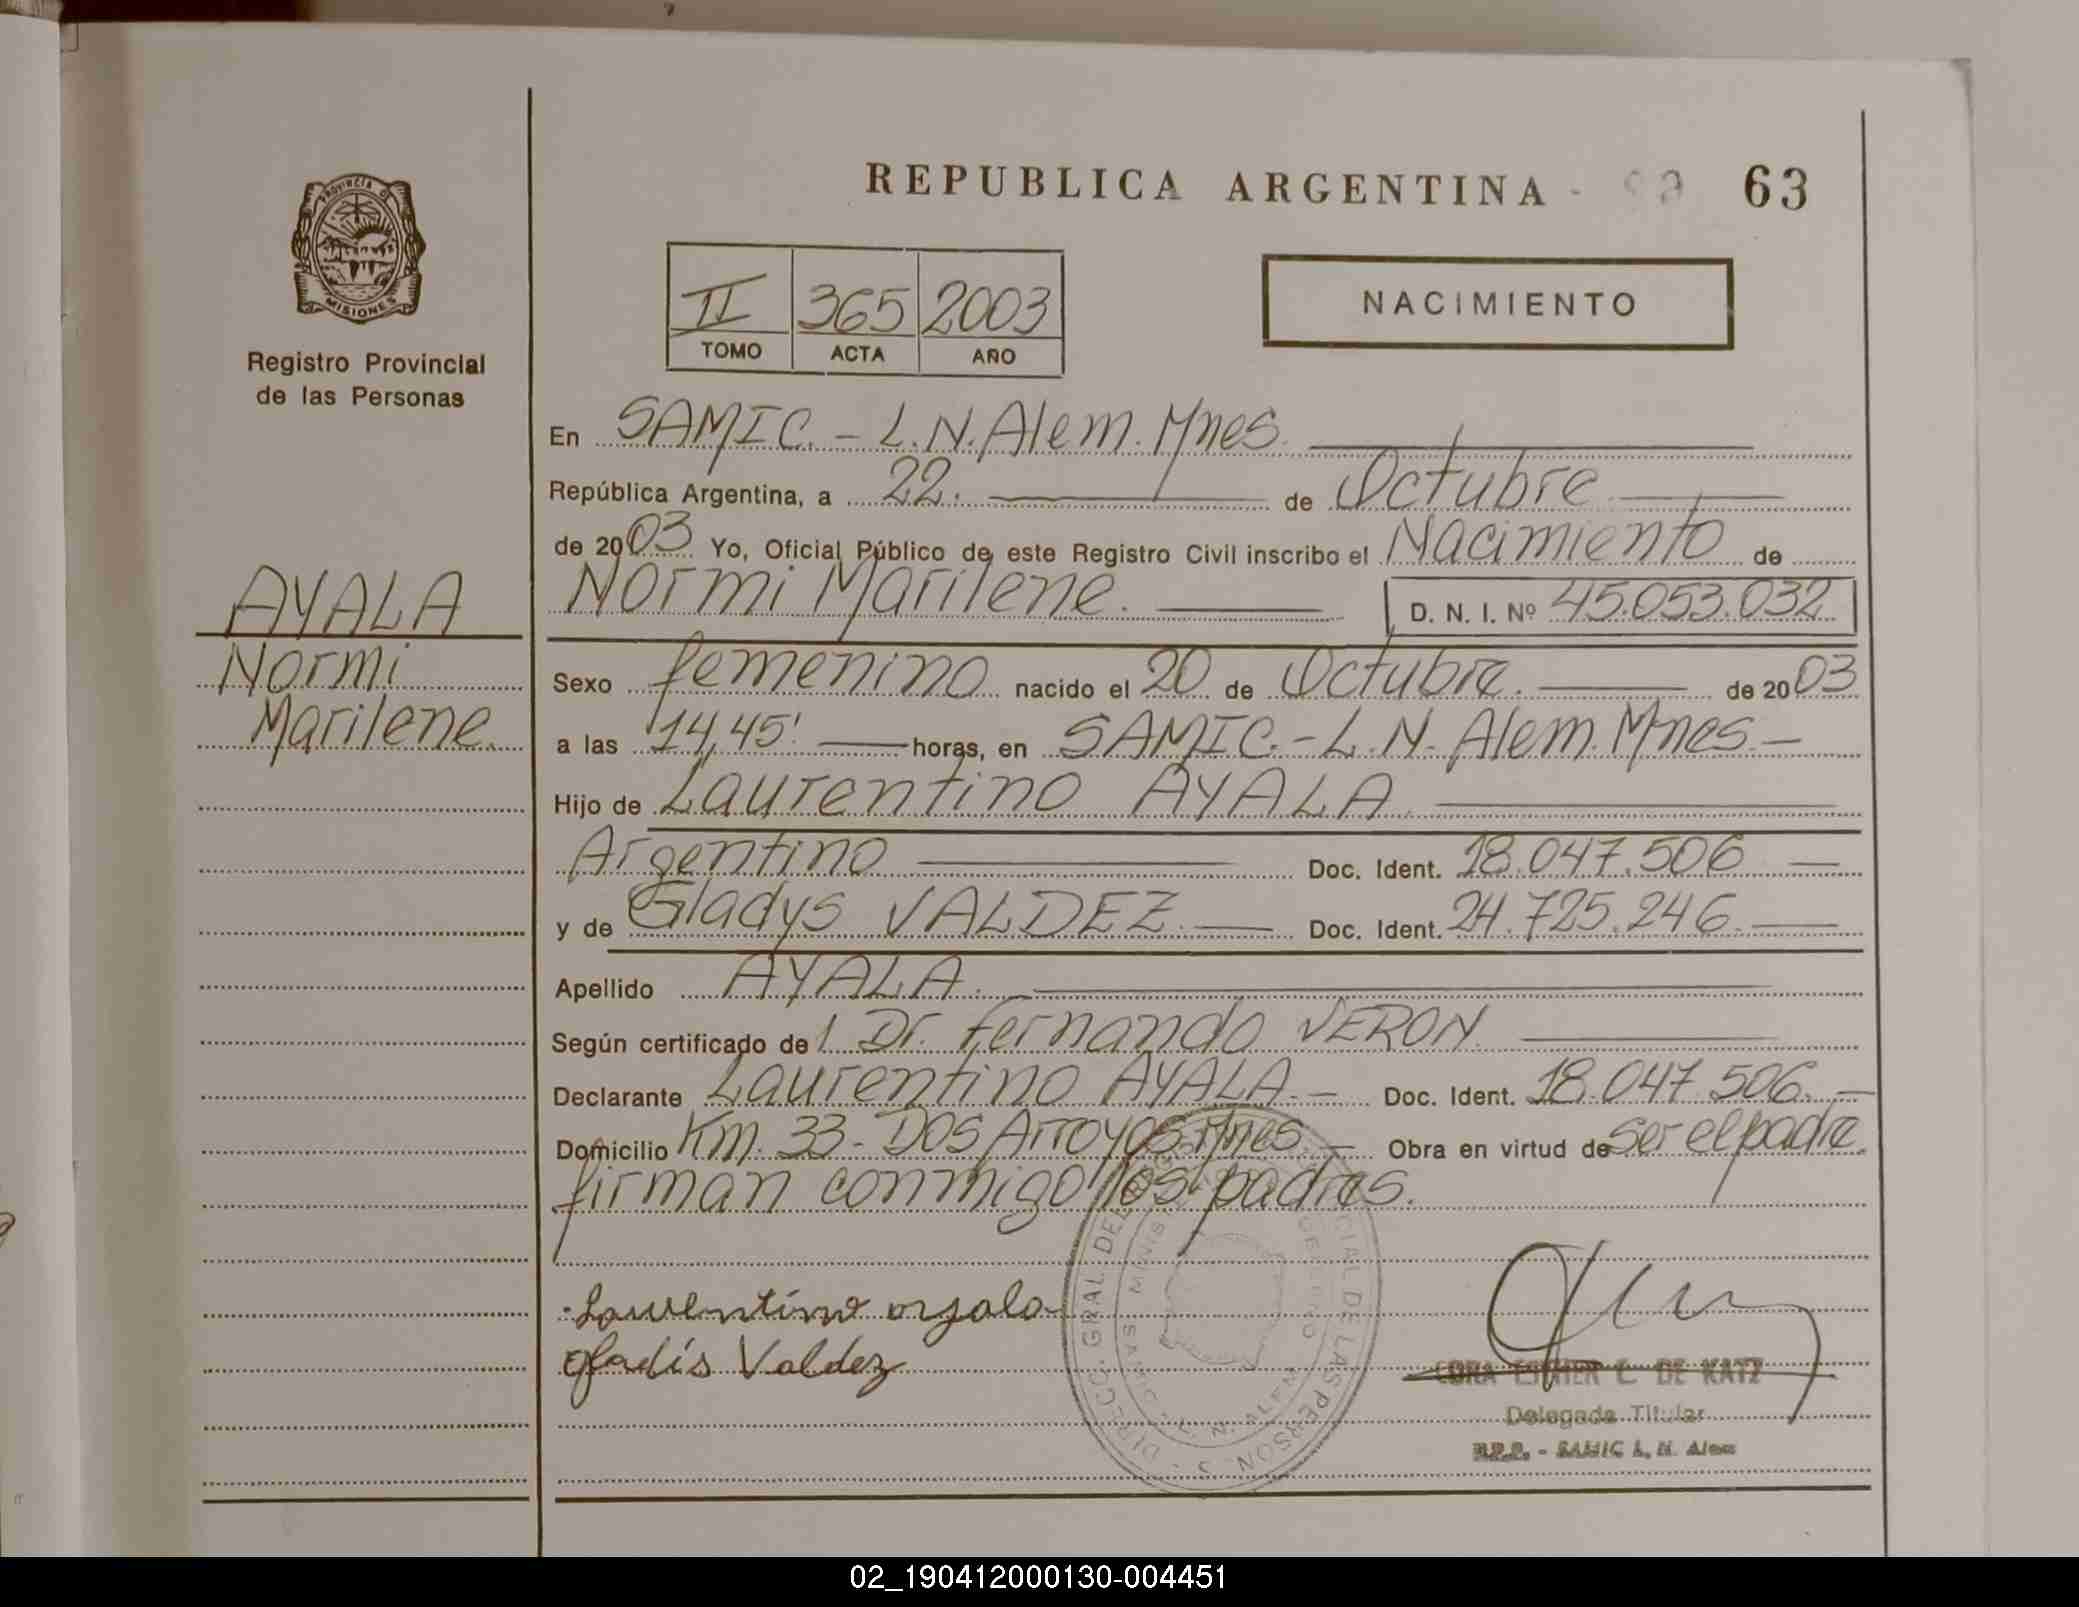 REPUBLICA ARGENTINA 63
PROVINCIA D
MISIONES
Registro Provincial
de las Personas
II 365 2003
TOMO ACTA AÑO
NACIMIENTO
En SAMIC. - L.N. Alem. Mnes.
República Argentina, a 22. de Octubre
de 2003 Yo, Oficial Público de este Registro Civil inscribo el Nacimiento de
AYALA
Normi Marilene. D. N. I. Nº 45.053.032
Normi
Marilene.
Sexo femenino nacido el 20 de Octubre. de 2003
a las 14,45' horas, en SAMIC. - L. N. Alem. Mnes. -
Hijo de Laurentino AYALA
Argentino Doc. Ident. 18.047.506
y de Gladys VALDEZ Doc. Ident. 24.725.246.
Apellido AYALA.
Según certificado de Dr. Fernando VERON
Declarante Laurentino AYALA. - Doc. Ident. 18.047.506. -
Domicilio Km. 33 - DOS Arroyos Mnes - Obra en virtud de ser el padre.
firman conmigo los padres.
Laurentino ayala
gladis Valdez
DIRECC. GRAL. DEL CIAL DE LAS PERSON S
L. N. ALEM
C. DE KATZ
Delegada Titular
R.P.P. - SAMIC L. N. Alem
02_190412000130-004451